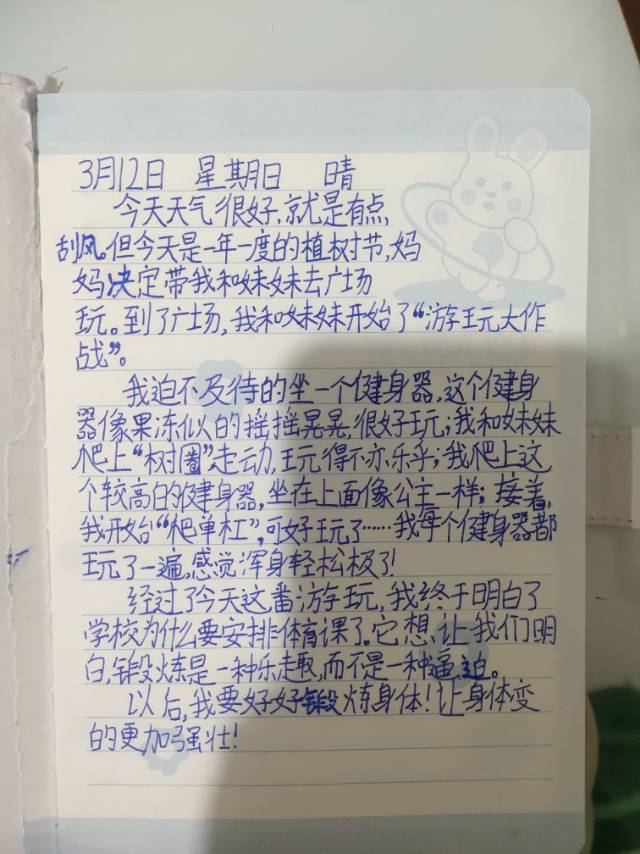 3月12日 星期日 晴
今天天气很好,就是有点
刮风。但今天是一年一度的植树节,妈
妈决定带我和妹妹去广场
玩。到了广场,我和妹妹开始了“游玩大作
战”。
我迫不及待的坐一个健身器,这个健身
器像果冻似的摇摇晃晃,很好玩;我和妹妹
爬上“树圈”走动,玩得不亦乐乎;我爬上这
个较高的健身器,坐在上面像公主一样;接着,
我开始“爬单杠”,可好玩了……我每个健身器都
玩了一遍,感觉浑身轻松极了!
经过了今天这番游玩,我终于明白了
学校为什么要安排体育课了。它想让我们明
白,锻炼是一种乐趣,而不是一种逼迫。
以后,我要好好锻炼身体!让身体变
的更加强壮!